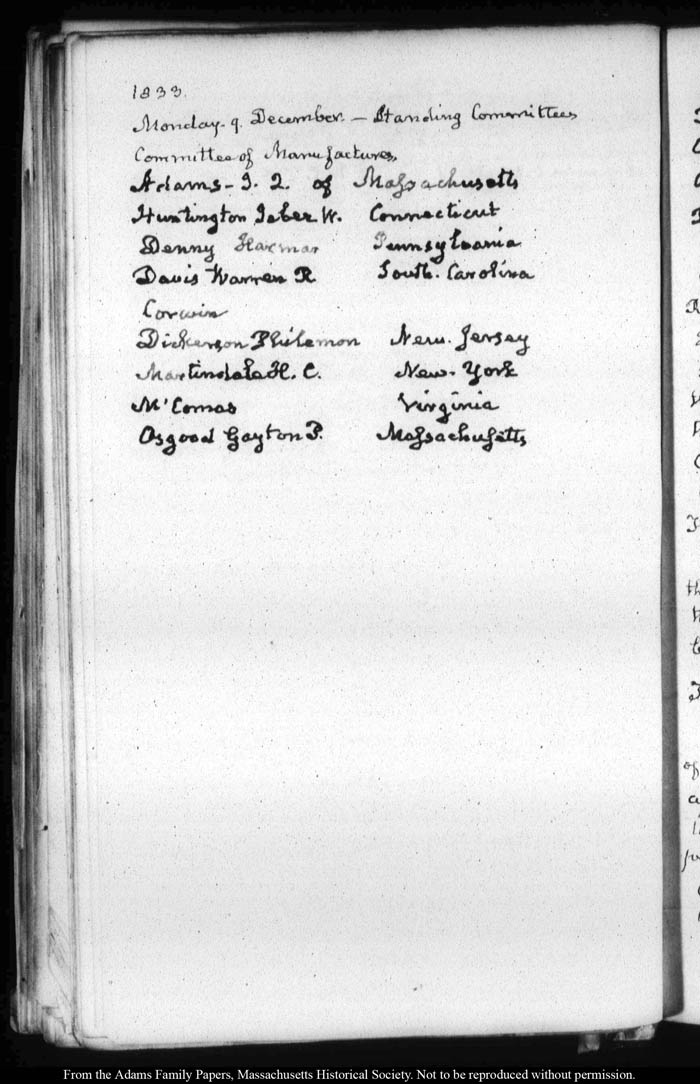 1833.
Monday. 9. December. — Standing Committees
Committee of Manufactures,
Adams - J. Q. of Massachusetts
Huntington Jabez W. Connecticut
Denny Harmar Pennsylvania
Davis Warren R South. Carolina
Corwin
Dickerson Philemon New. Jersey
Martindale H. C. New-York
M'Comas Virginia
Osgood Gayton P. Massachusetts
From the Adams Family Papers, Massachusetts Historical Society. Not to be reproduced without permission.